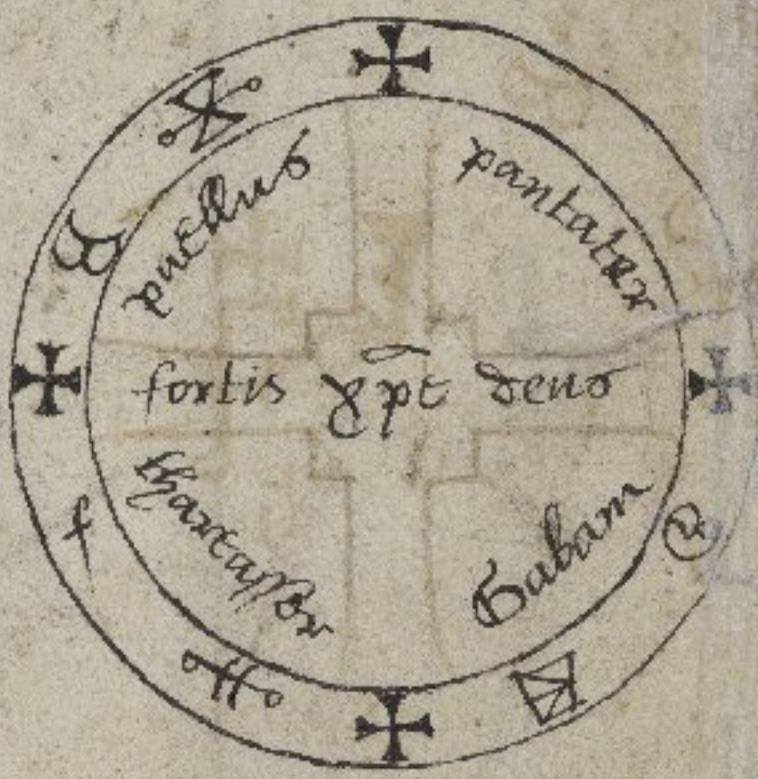 puellus
pantater
fortis xp̄e deus
thartasser
Gabam